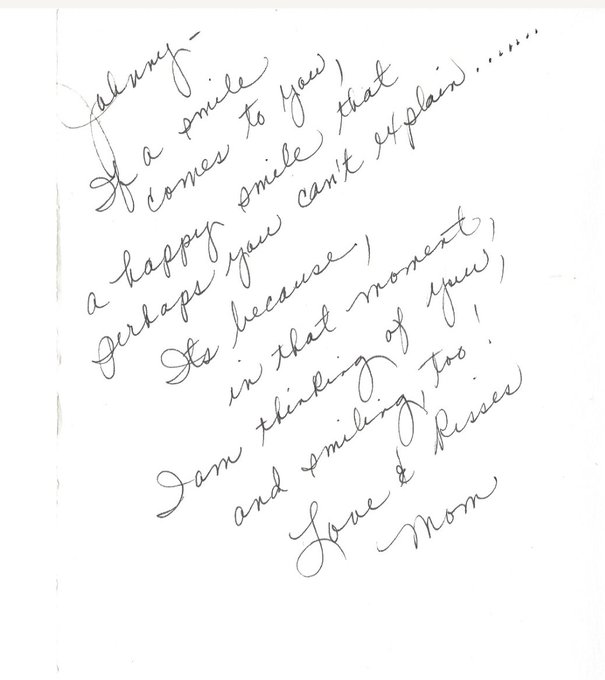 Johnny -
If a smile
comes to you,
a happy smile that
perhaps you can't explain.......
Its because,
in that moment,
I am thinking of you,
and smiling, too!
Love & Kisses
Mom